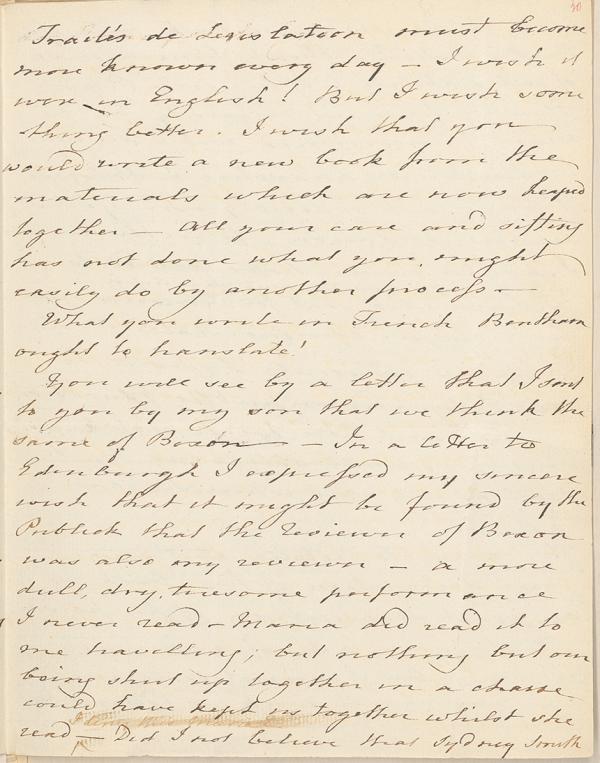 30
Traités de Legislation must become
more known every day – I wish it
were in English! But I wish some
thing better. I wish that you
would write a new book from the
materials which are now heaped
together – All your care and sifting
has not done what you might
easily do by another process –
What you write in French Bentham
ought to translate!
You will see by a letter that I sent
to you by my son that we think the
same of Boxon – In a letter to
Edinburgh I expressed my sincere
wish that it might be found by the
Publick that the reviewer of Boxon
was also my reviewer – a more
dull, dry, tiresome performance
I never read – Maria did read it to
me travelling; but nothing but our
being shut up together in a chaise
could have kept us together whilst she
read – Did I not believe that Sydney Smith